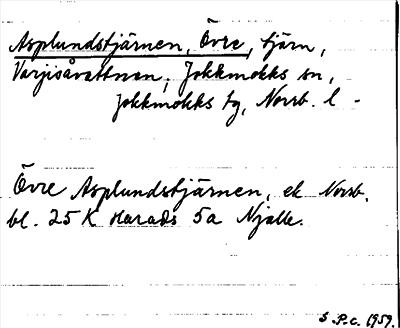 Asplundstjärnen, Övre, tjärn,
Varjisåvattnen, Jokkmokks sn,
Jokkmokks tg, Norrb. l -
Övre Asplundstjärnen, ek Norrb.
bl. 25 K Harads 5a Njalle.
S.P.C. 1959.